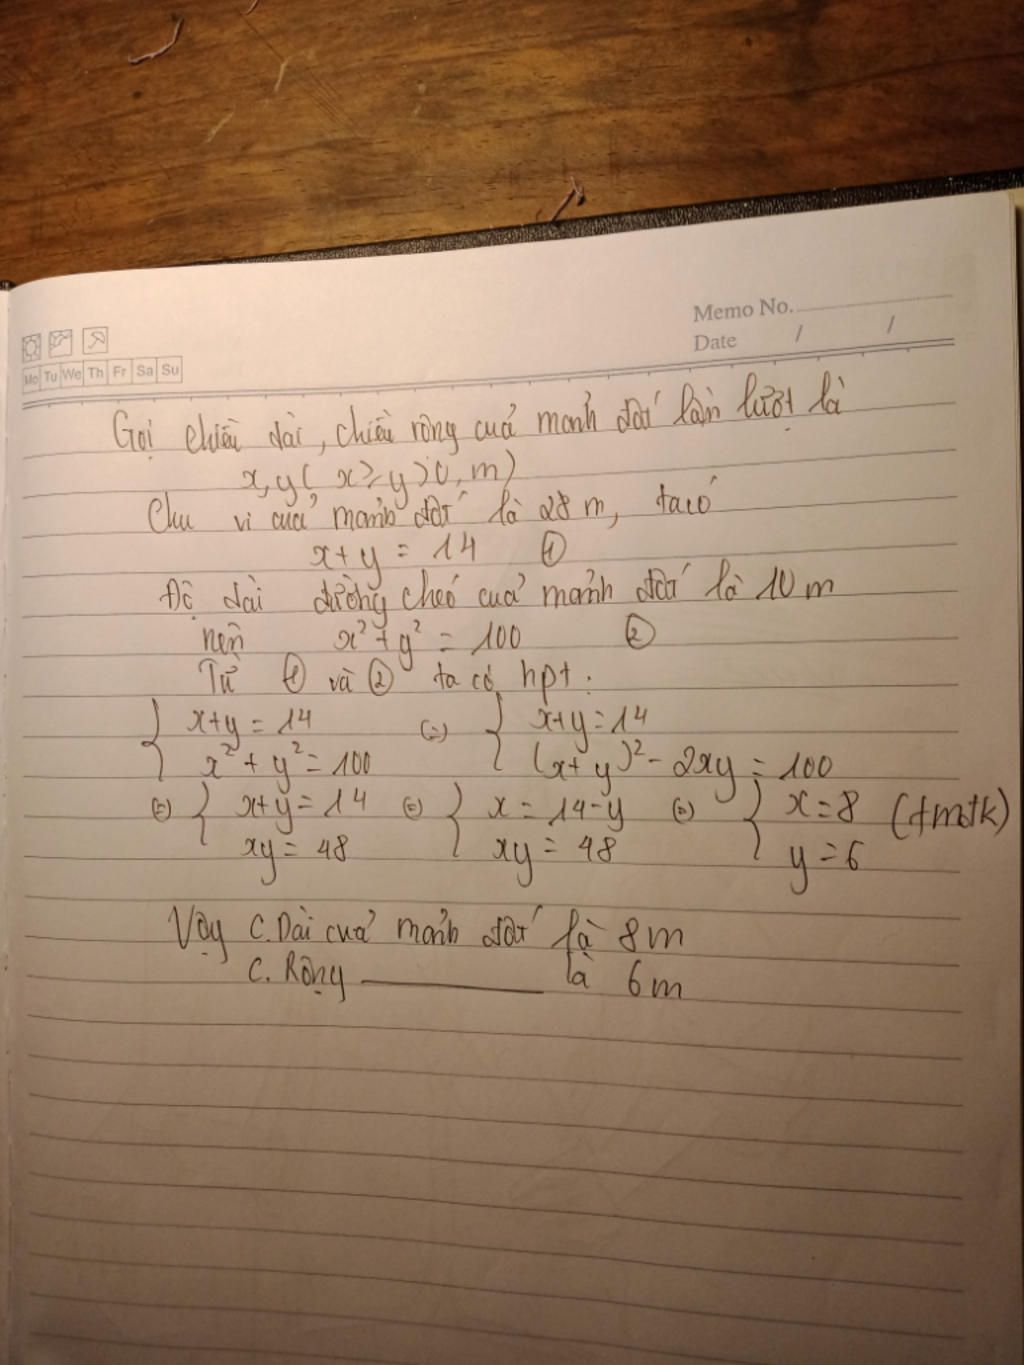 Memo No.
Date / /
Mo Tu We Th Fr Sa Su
Gọi chiều dài, chiều rộng của mảnh đất lần lượt là
x, y ( x ≥ y > 0, m)
Chu vi của mảnh đất là 28 m, ta có
x + y = 14 ①
Độ dài đường chéo của mảnh đất là 10 m
nên x² + y² = 100 ②
Từ ① và ② ta có hpt :
{ x+y = 14 (=) { x+y = 14
x² + y² = 100 (x+y)² - 2xy = 100
(=) { x+y = 14 (=) { x = 14-y (=) { x = 8 (tmđk)
xy = 48 xy = 48 y = 6
Vậy C.Dài của mảnh đất là 8m
C. Rộng ———— là 6m